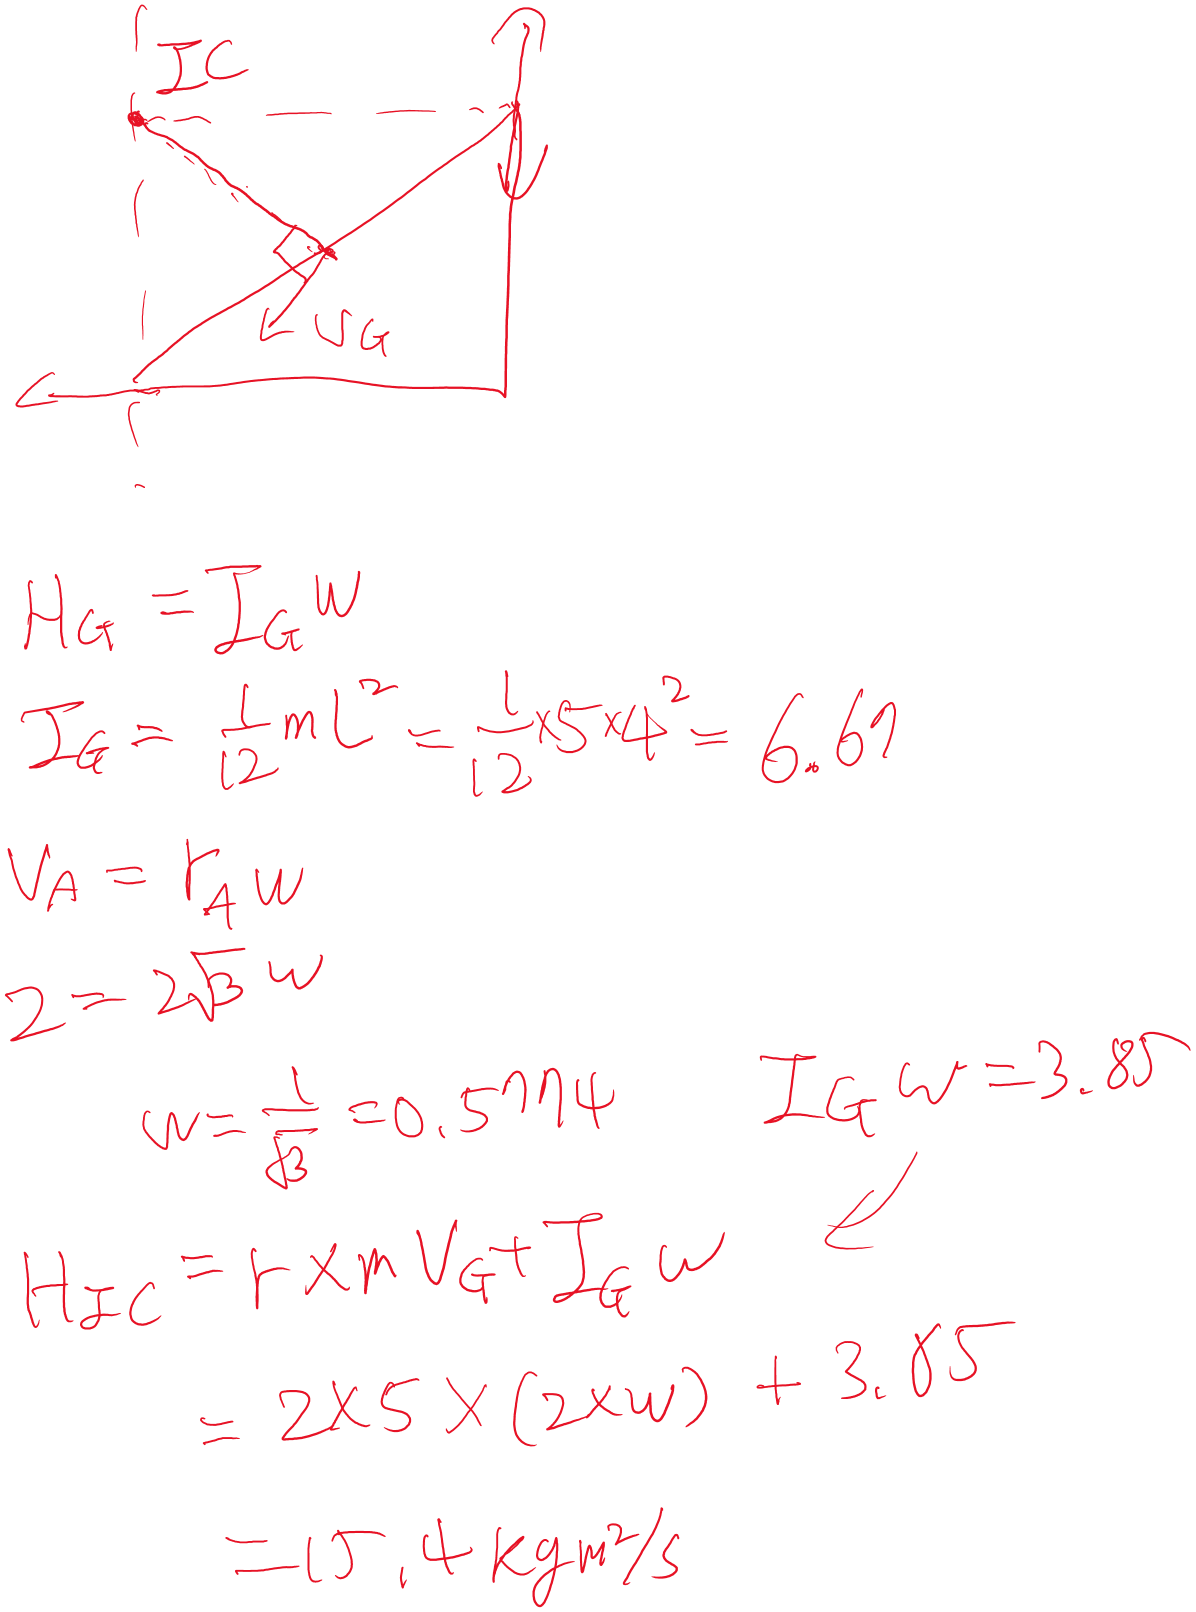 IC
VG
HG = IG W
IG = 1/12 m l² = 1/12 ×5×4² = 6.67
VA = rA W
2 = 2√3 W
W = 1/√3 = 0.5774
IG W = 3.85
HIC = r × m VG + IG W
= 2×5×(2×W) + 3.85
= 15.4 kgm²/s